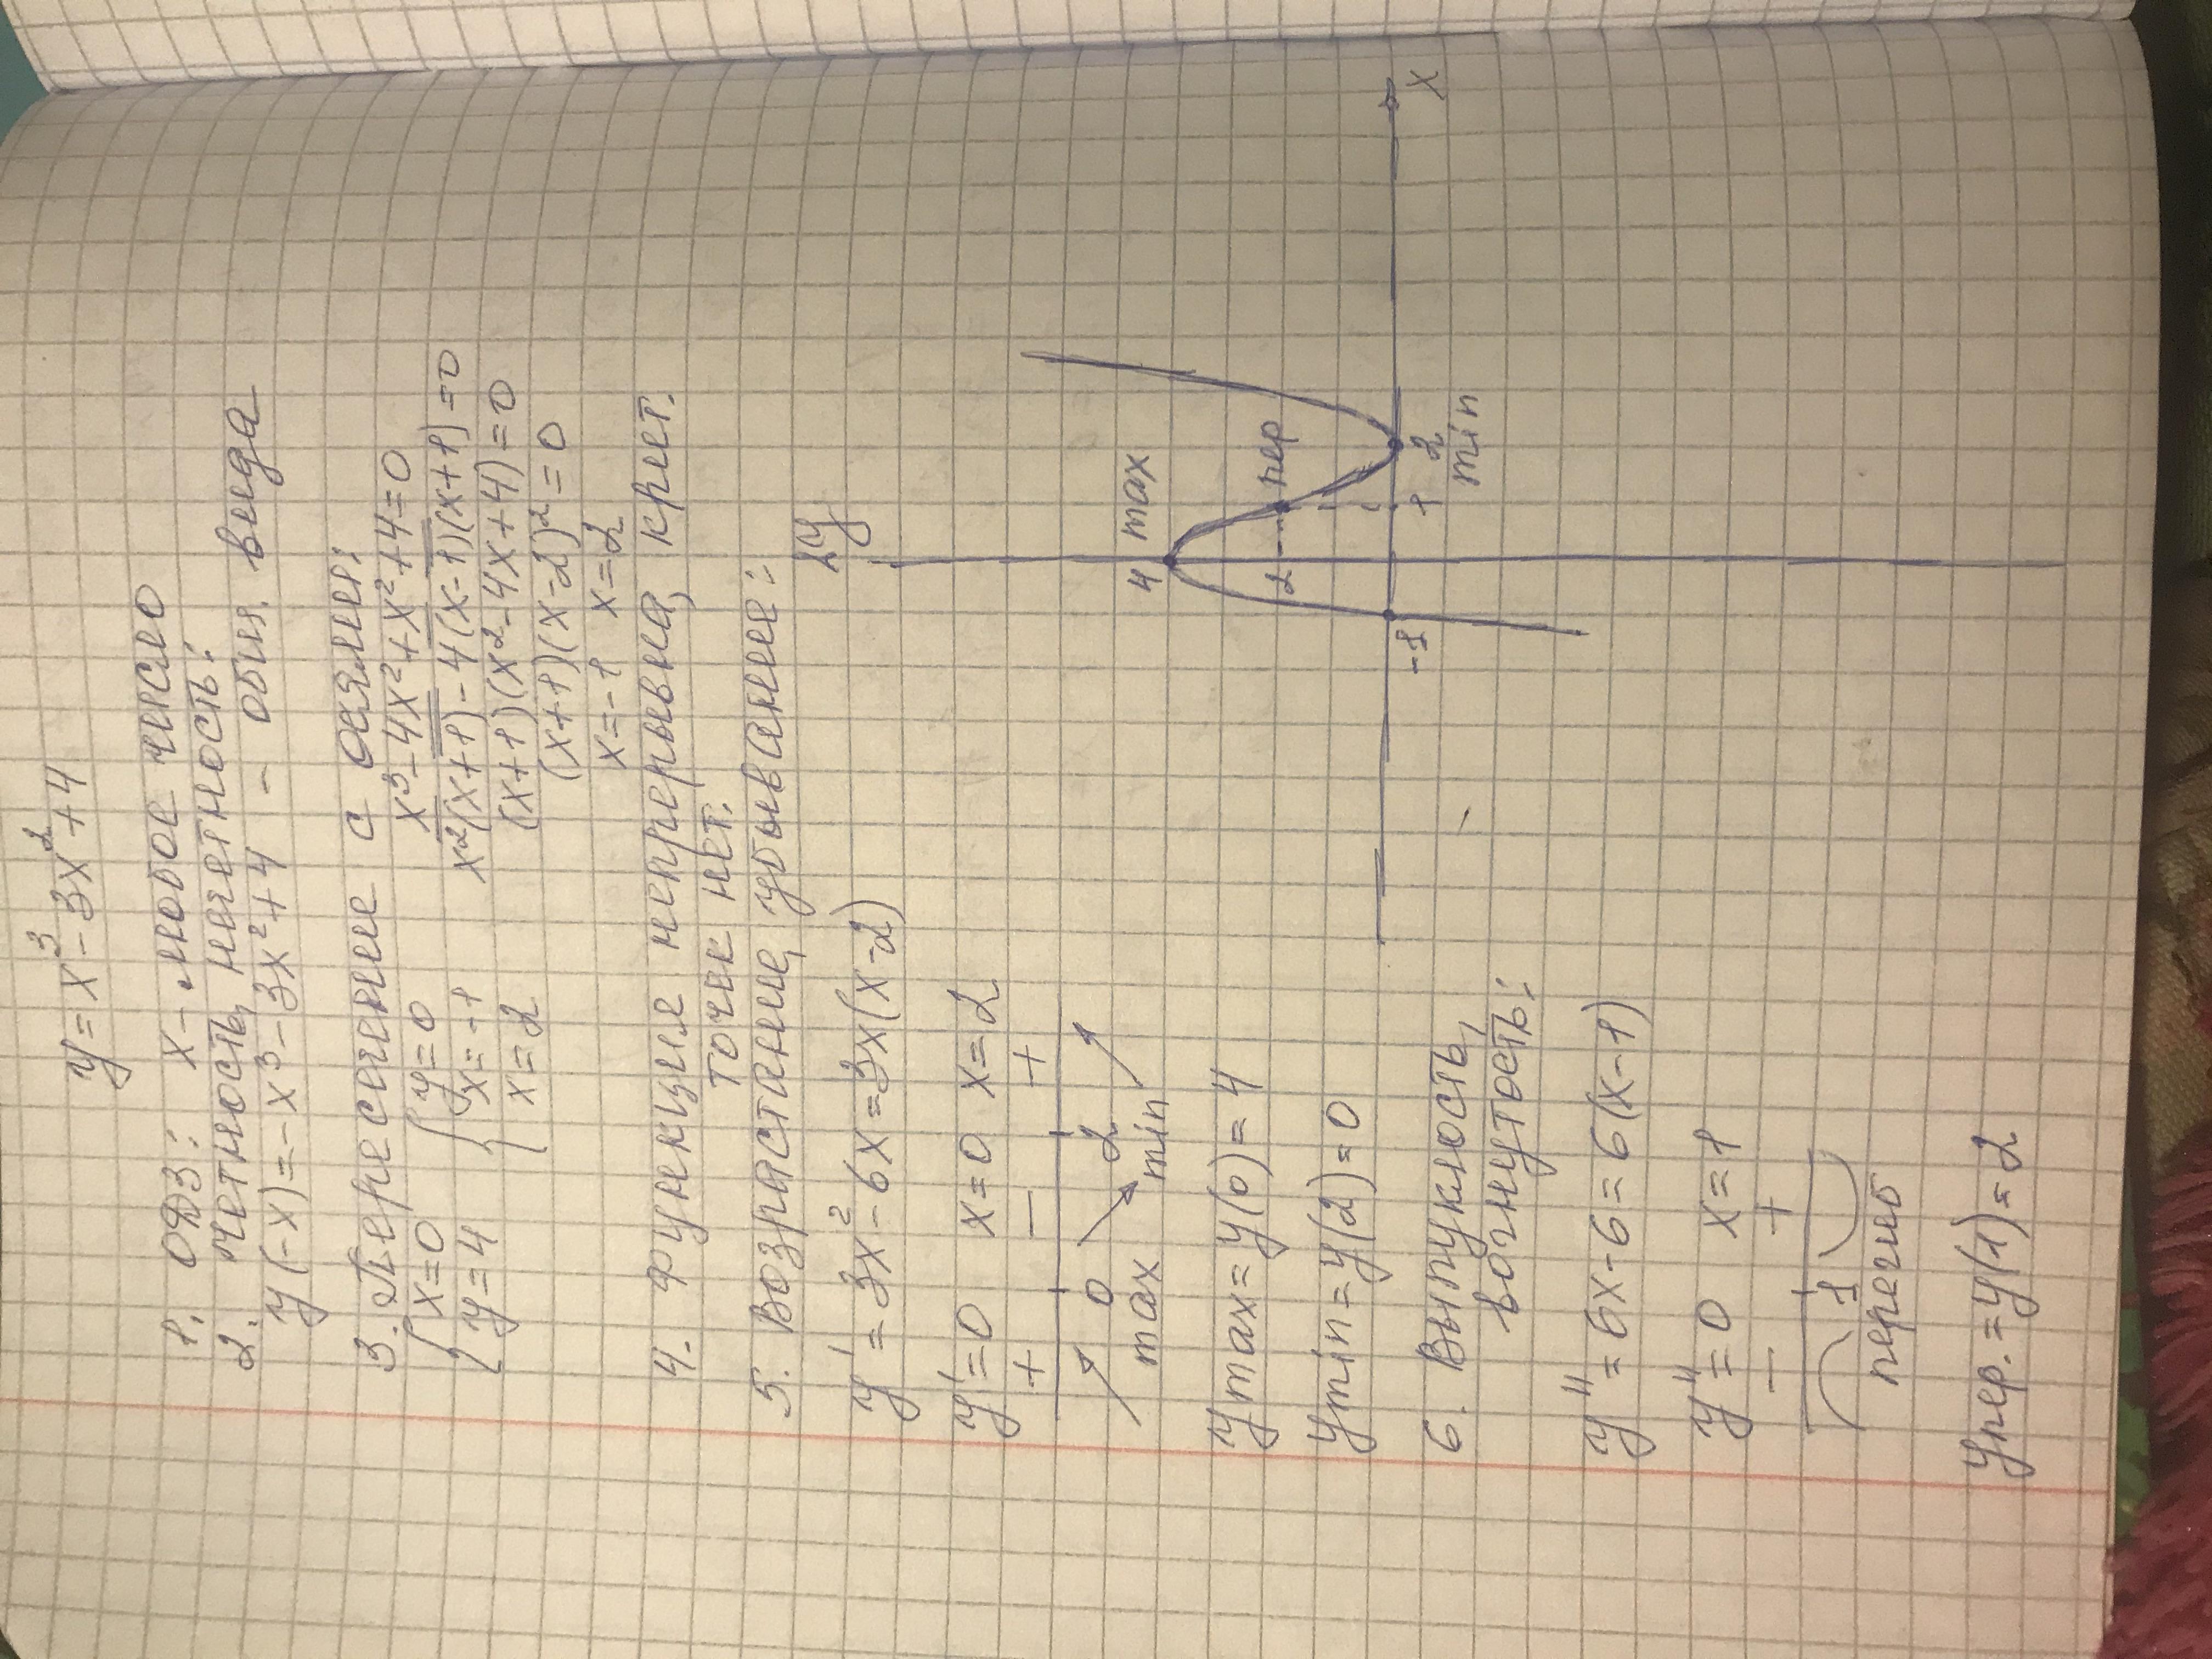 y = x³ - 3x² + 4
1. ОДЗ: x - любое число
2. Четность, нечетность:
y(-x) = -x³ - 3x² + 4 - общ. вида
3. Пересечение с осями:
{x=0
y=4
{y=0
x=-1
x=2
x³ - 4x² + x² + 4 = 0
x²(x+1) - 4(x-1)(x+1) = 0
(x+1)(x² - 4x + 4) = 0
(x+1)(x-2)² = 0
x = -1 x = 2
4. Функция непрерывна, крит.
точек нет.
5. Возрастание, убывание:
y' = 3x² - 6x = 3x(x-2)
y' = 0 x = 0 x = 2
+ - +
0 2
max min
y max = y(0) = 4
y min = y(2) = 0
6. Выпуклость,
вогнутость:
y'' = 6x - 6 = 6(x-1)
y'' = 0 x = 1
- +
1
перегиб
y пер. = y(1) = 2
y
4 max
2 пер
-1 1 2 x
min